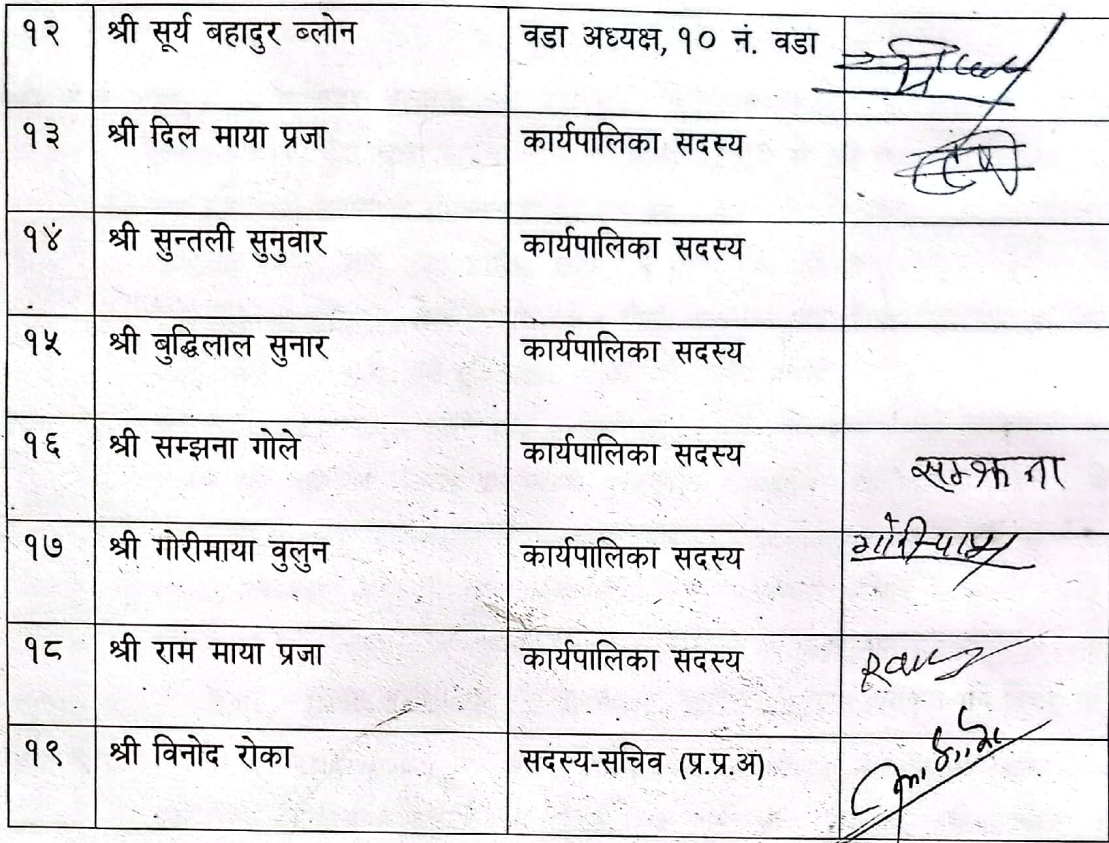 १२ श्री सूर्य बहादुर ब्लोन वडा अध्यक्ष, १० नं. वडा
१३ श्री दिल माया प्रजा कार्यपालिका सदस्य
१४ श्री सुन्तली सुनुवार कार्यपालिका सदस्य
१५ श्री बुद्धिलाल सुनार कार्यपालिका सदस्य
१६ श्री सम्झना गोले कार्यपालिका सदस्य सम्झना
१७ श्री गोरीमाया वुलुन कार्यपालिका सदस्य
१८ श्री राम माया प्रजा कार्यपालिका सदस्य
१९ श्री विनोद रोका सदस्य-सचिव (प्र.प्र.अ)